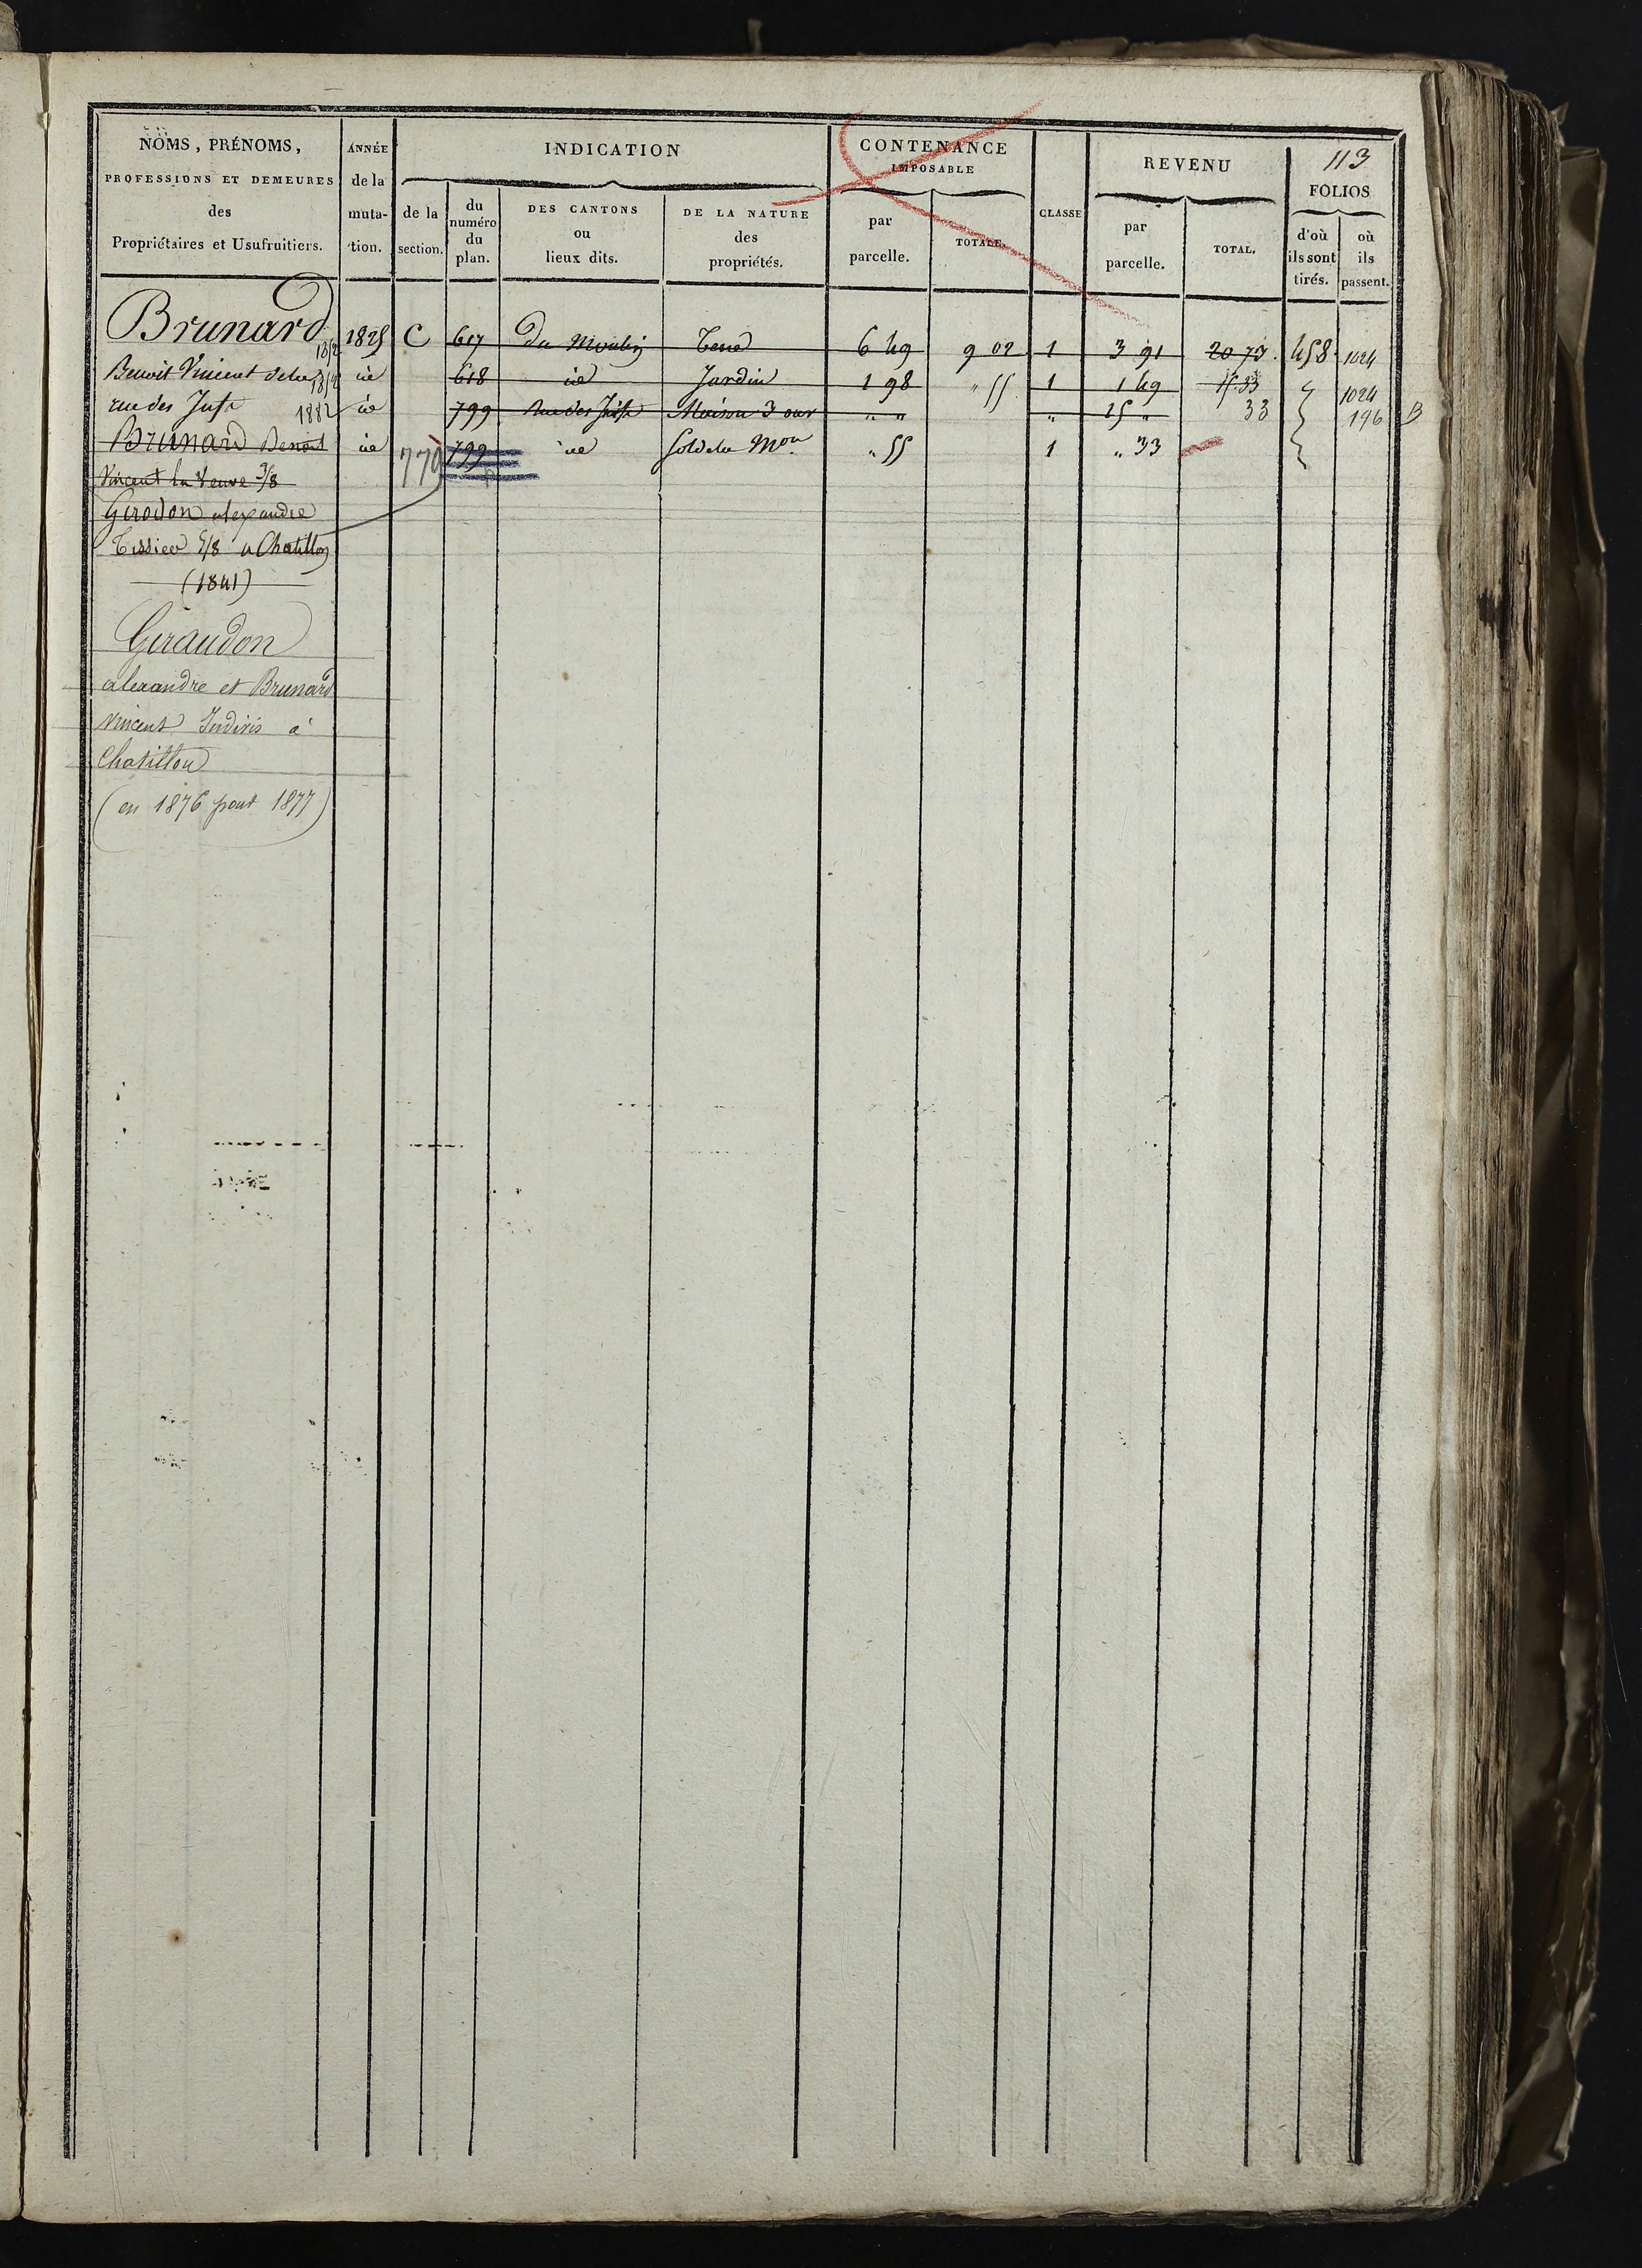 113
NOMS, PRÉNOMS,
PROFESSIONS ET DEMEURES
des
Propriétaires et Usufruitiers.
ANNÉE
de la
muta-
tion.
INDICATION
de la
section.
du
numéro
du
plan.
DES CANTONS
ou
lieux dits.
DE LA NATURE
des
propriétés.
CONTENANCE
IMPOSABLE
par
parcelle.
TOTALE.
CLASSE
REVENU
par
parcelle.
TOTAL.
FOLIOS
d'où
ils sont
tirés.
où
ils
passent.
Brunard 1825 C 617 du Moulin Terre 6 49 9 02 1 3 91 20 73 458 1024
Benoit Vincent id 618 id Jardin 1 98 " 55 1 1 49 15 33 1024
rue des 1882 id 799 Rue des Maison 3 our " " " 15 " 33 196 B
Brunard Benoit id 770 799 id Sol de la Mon " 55 1 " 33
Vincent la Veuve 3/8
Girodon alexandre
Tissier 5/8 a Chatillon
(1841)
Giraudon
alexandre et Brunard
Vincent Indivis à
Chatillon
(en 1876 pour 1877)